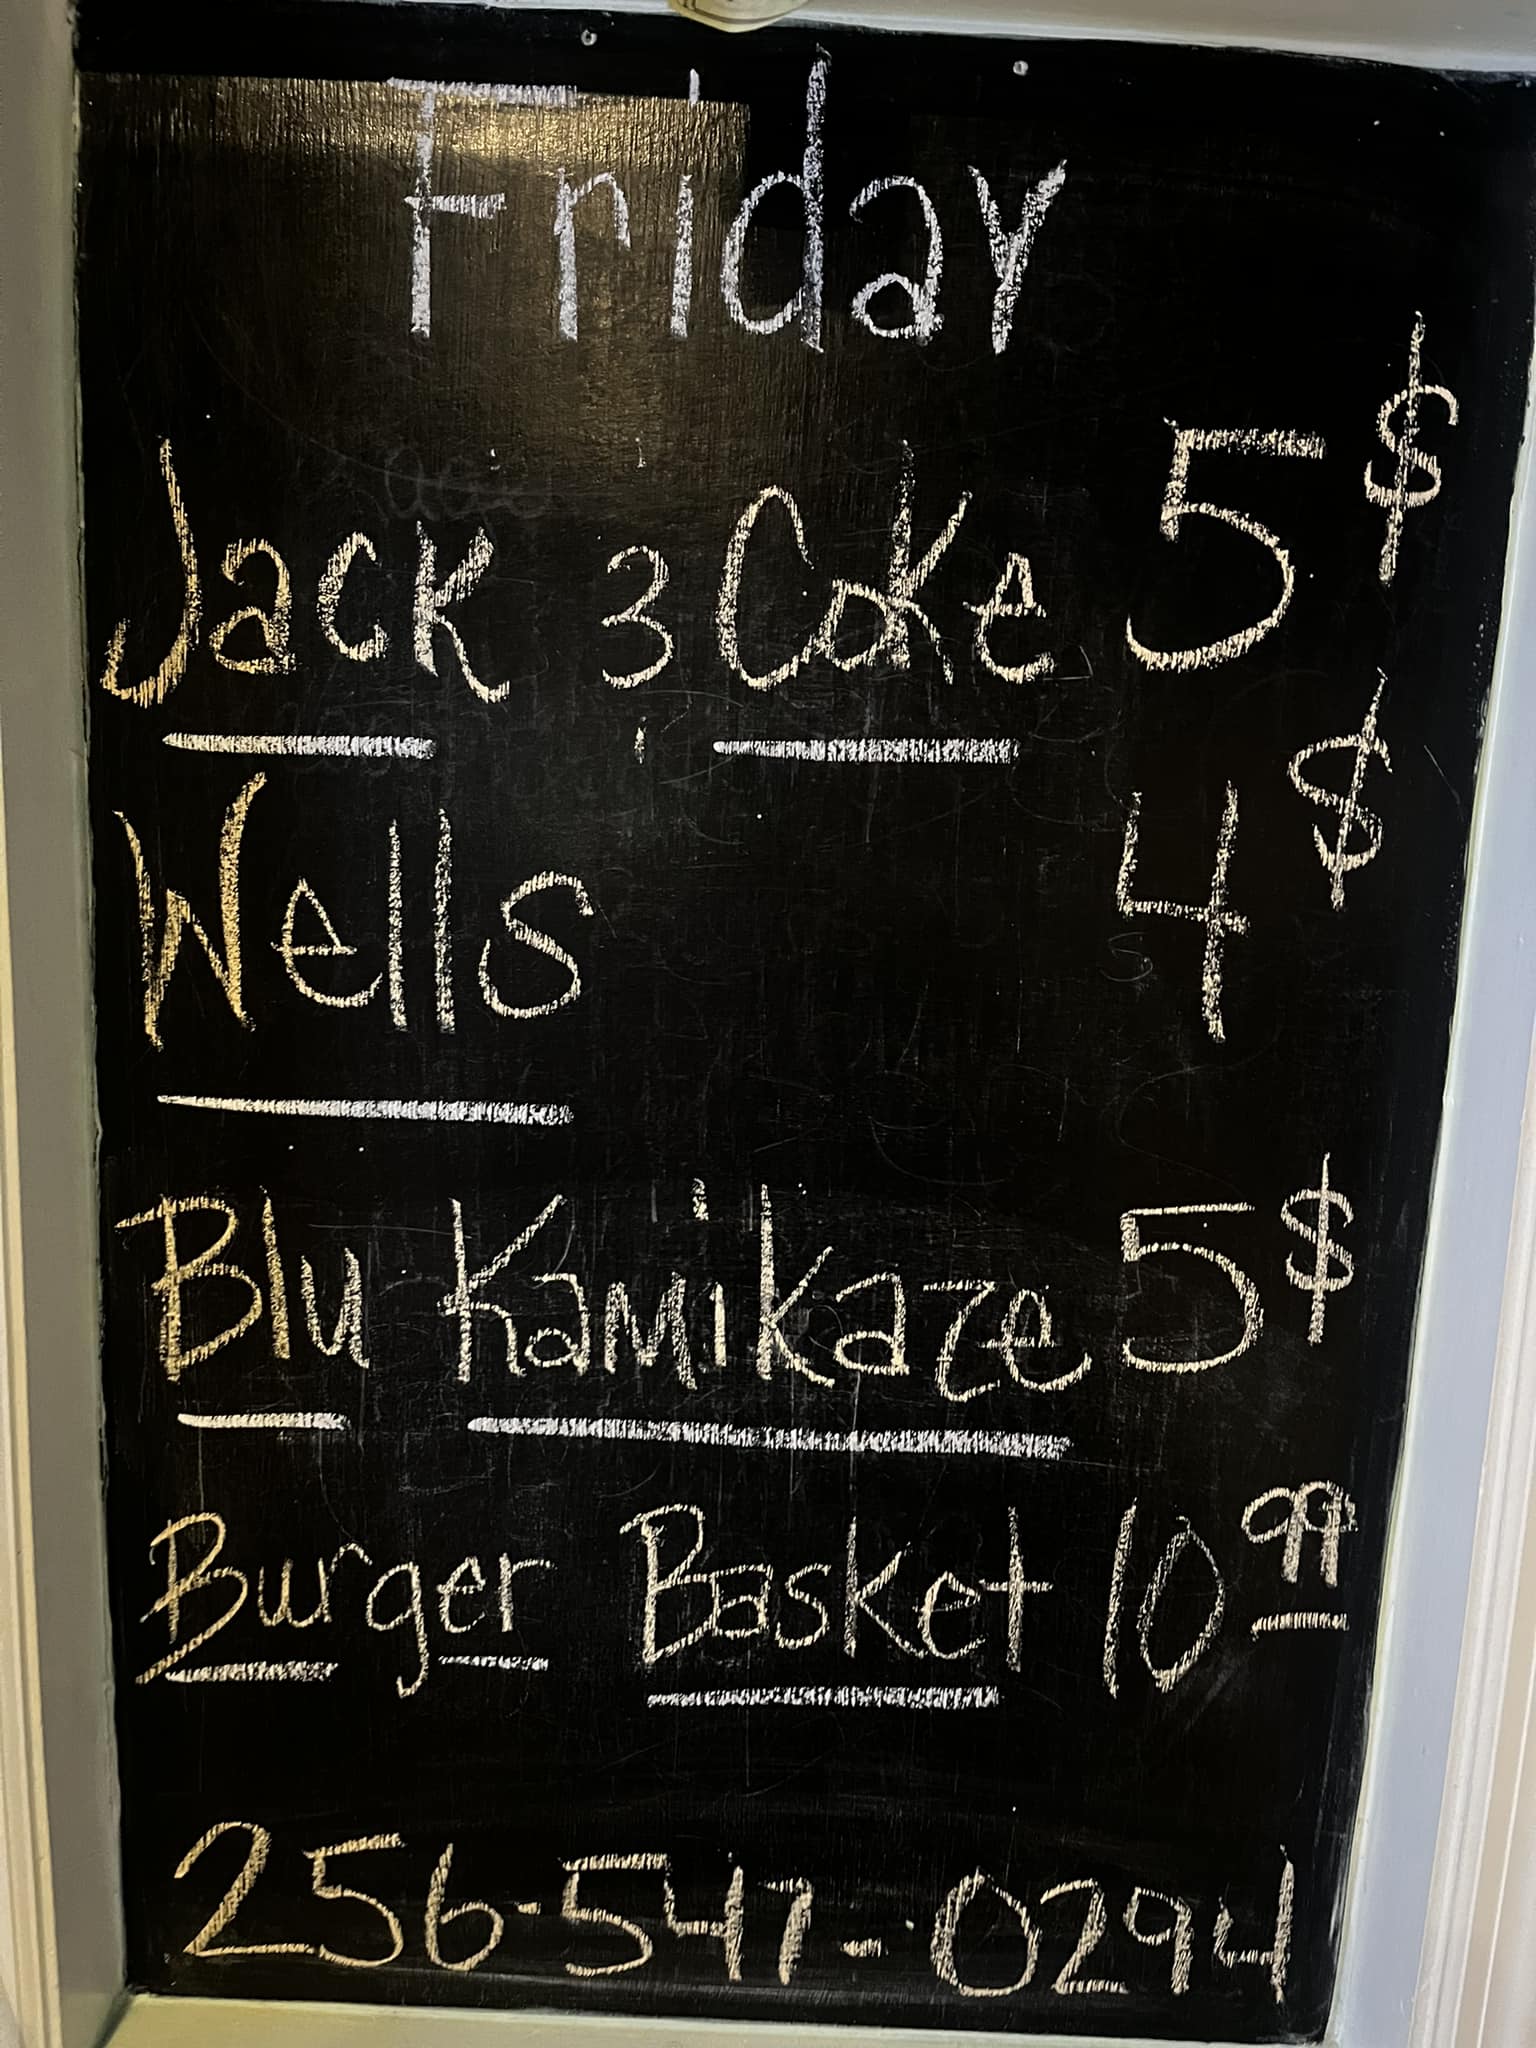 Friday
Jack & Coke 5$
Wells 4$
Blu Kamikaze 5$
Burger Basket 10 99
256-547-0294